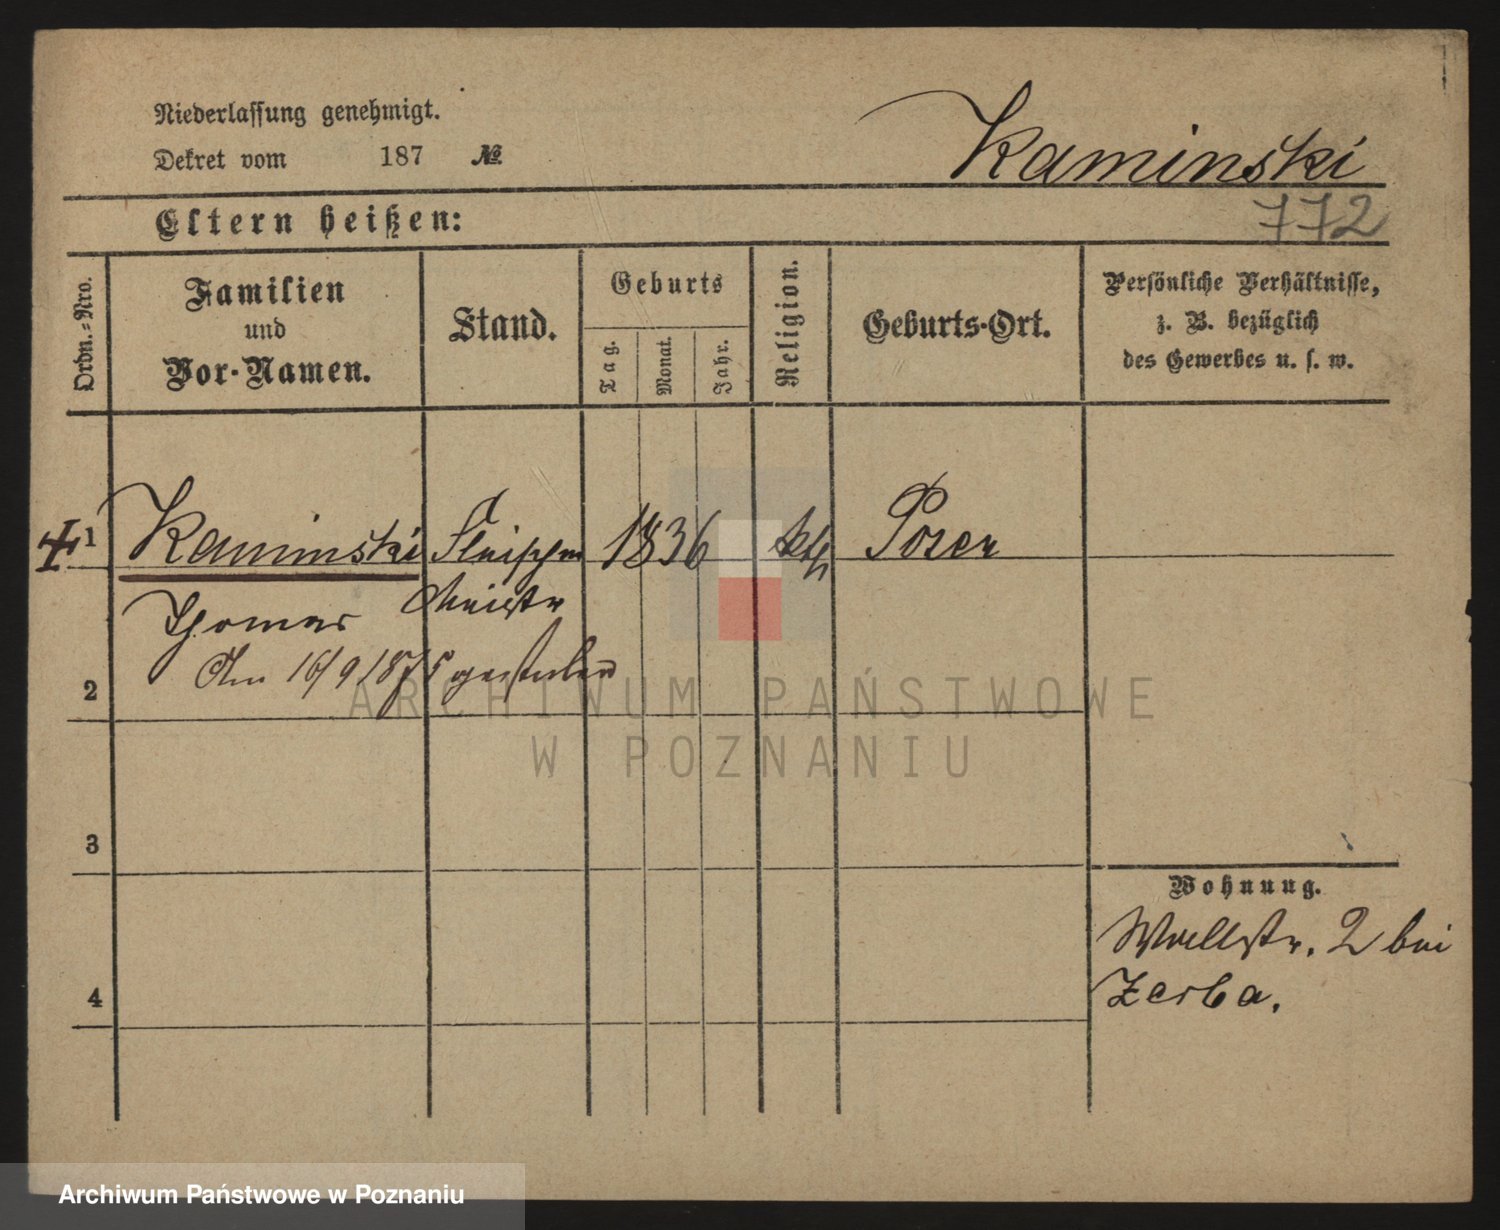 Niederlassung genehmigt.
Dekret vom 187 №
Kaminski
772
Eltern heißen:
Ordn.-Nro.
Familien
und
Vor-Namen.
Stand.
Geburts
Tag.
Monat.
Jahr.
Religion.
Geburts-Ort.
Persönliche Verhältnisse,
z. B. bezüglich
des Gewerbes u. s. w.
1 Kaminski Fleischer 1836 kth Posen
Thomas Meistr
Am 16/9 1875 gestorben
2
3
4
Wohnung.
Wallstr. 2 bei
Zerba.
ARCHIWUM PAŃSTWOWE
W POZNANIU
Archiwum Państwowe w Poznaniu